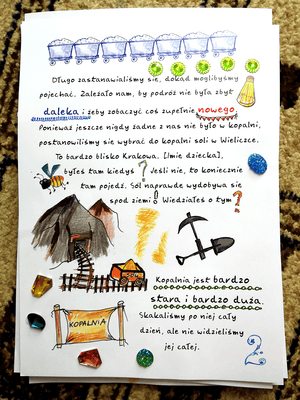 Długo zastanawialiśmy się, dokąd moglibyśmy
pojechać. Zależało nam, by podróż nie była zbyt
daleka i żeby zobaczyć coś zupełnie nowego.
Ponieważ jeszcze nigdy żadne z nas nie było w kopalni,
postanowiliśmy się wybrać do kopalni soli w Wieliczce.
To bardzo blisko Krakowa. [Imię dziecka],
byłeś tam kiedyś? Jeśli nie, to koniecznie
tam pojedź. Sól naprawdę wydobywa się
spod ziemi! Wiedziałeś o tym?
Kopalnia jest bardzo
stara i bardzo duża.
Skakaliśmy po niej cały
dzień, ale nie widzieliśmy
jej całej.
KOPALNIA
2.